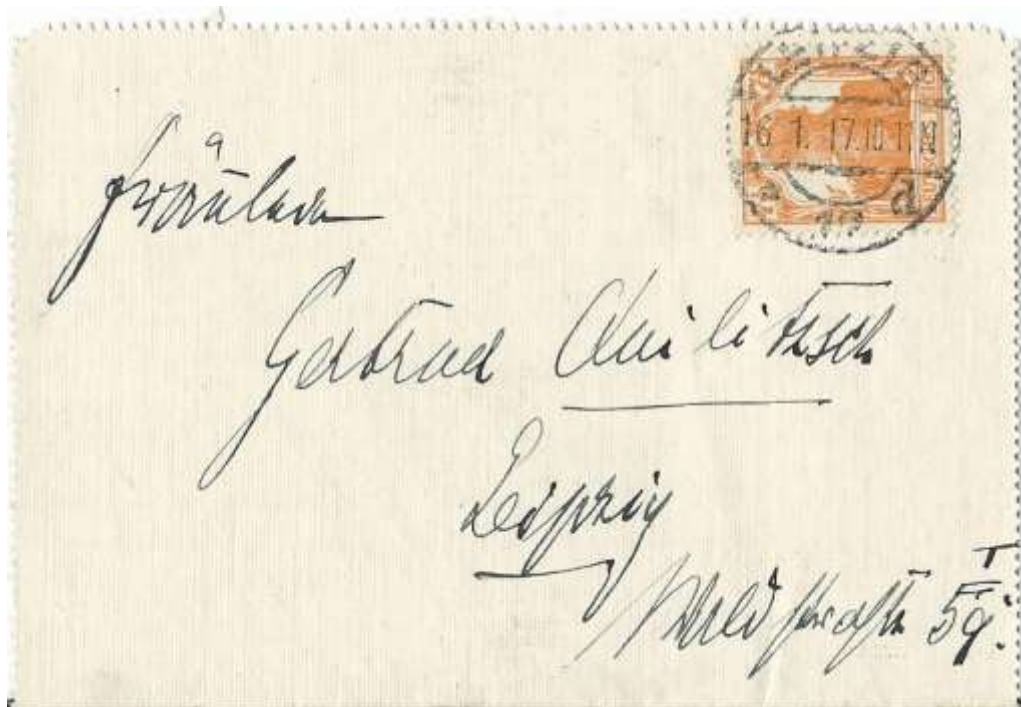 16.1.17.10-11N
Fräulein
Gertrud Quilitzsch
Leipzig
Waldstraße 59 I